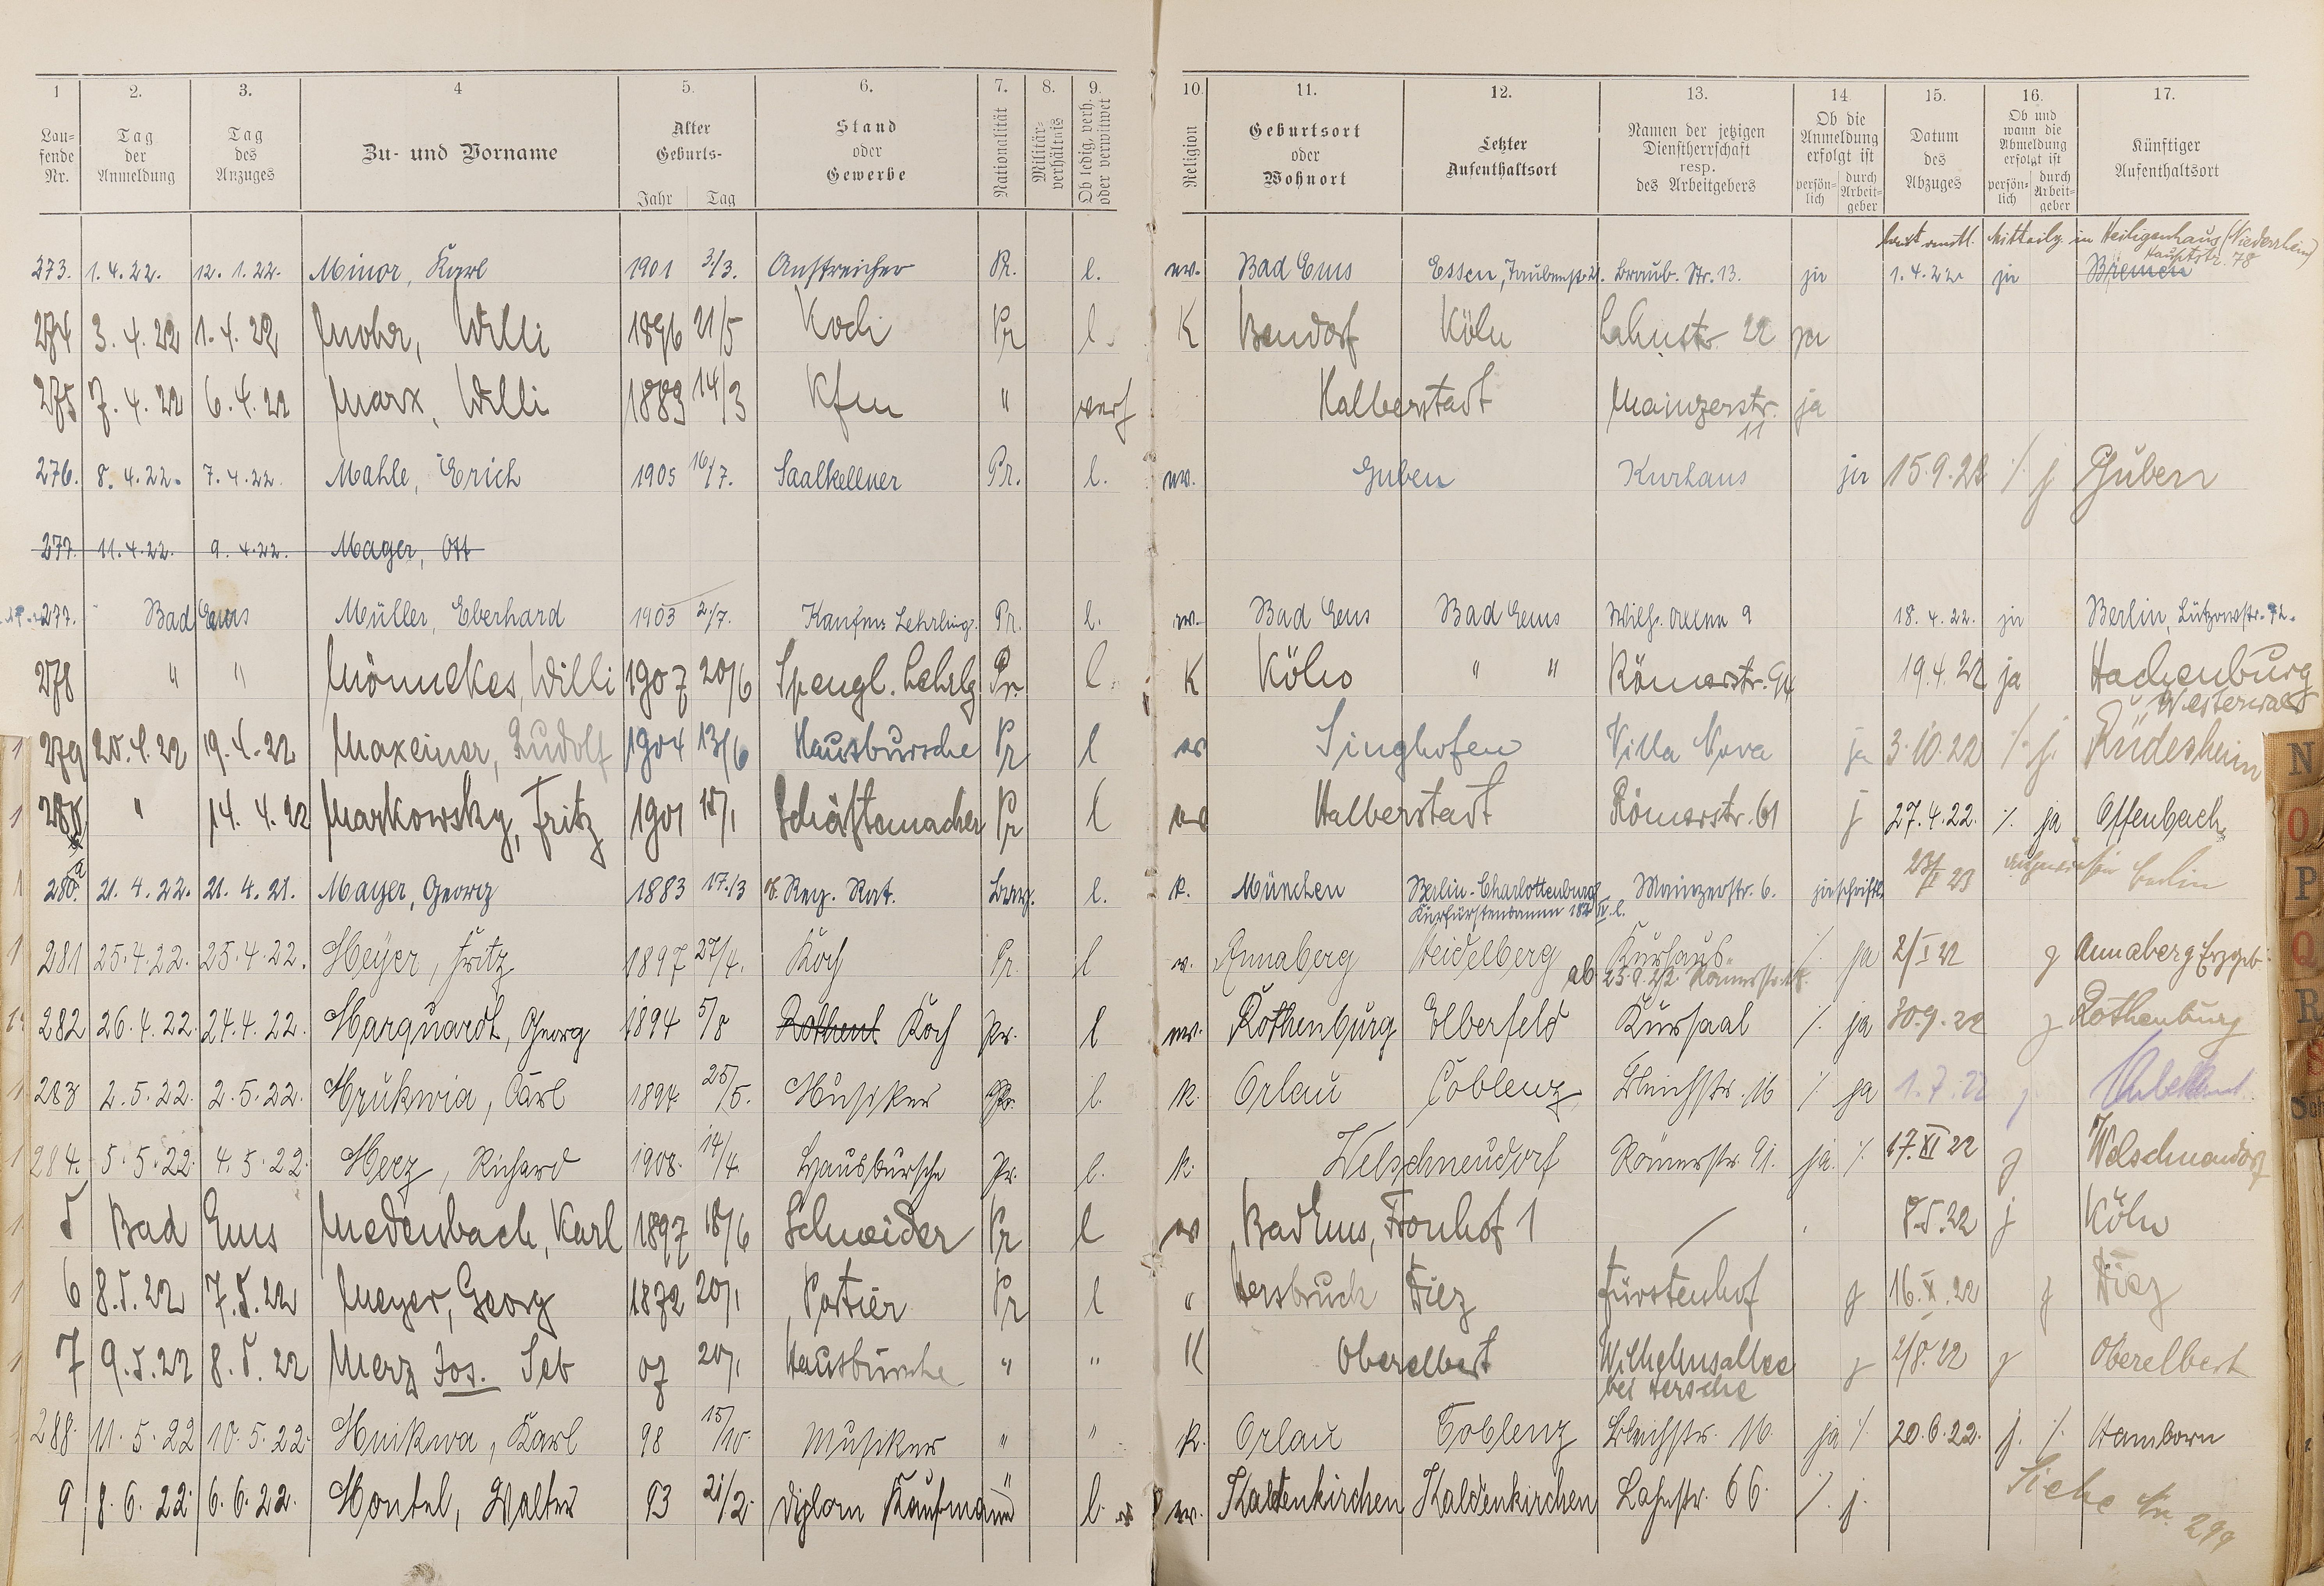 1 2. 3. 4 5. 6. 7. 8. 9. 10. 11. 12. 13. 14. 15. 16. 17.
Lau-fende Nr. Tag der Anmeldung Tag des Anzuges Zu- und Vorname Alter Geburts- Jahr Tag Stand oder Gewerbe Nationalität Militär-verhältnis Ob ledig, verh. oder verwitwet Religion Geburtsort oder Wohnort Letzter Aufenthaltsort Namen der jetzigen Dienstherrschaft resp. des Arbeitgebers Ob die Anmeldung erfolgt ist persön-lich durch Arbeit-geber Datum des Abzuges Ob und wann die Abmeldung erfolgt ist persön-lich durch Arbeit-geber Künftiger Aufenthaltsort
laut amtl. Mitteilg in Heiligenhaus (Niederrhein)
Hauptstr. 78
273. 1.4.22. 12.1.22. Minor, Karl 1901 3/3. Anstreicher Pr. l. ew. Bad Ems Essen, Braub. Str. 13. ja 1.4.22 ja Bremen
274 3.4.22 1.4.22 Mohr, Willi 1896 21/5 Koch Pr l. K Bendorf Köln Lahnstr. 22 ja
275 7.4.22 6.4.22 Marx, Willi 1883 14/3 Kfm " verh Halberstadt Mainzerstr. 11 ja
276. 8.4.22. 7.4.22. Mahle, Erich 1905 16/7. Saalkellner Pr. l. ew. Guben Kurhaus ja 15.9.22 ./. j Guben
277. 11.4.22. 9.4.22. Mager, Ott
277. Bad Ems Müller, Eberhard 1903 2/7. Kaufm. Lehrling. Pr. l. ew. Bad Ems Bad Ems Wilh. Allee 9 18.4.22. ja Berlin, Lützowstr. 72.
278 " " Mönnekes, Willi 1907 20/6 Spengl. Lehrlg Pr. l. K Köln " " Römerstr. 94 19.4.22 ja Hachenburg
Westerwald
1 279 20.4.22 19.4.22 Maxeiner, Rudolf 1904 13/6 Hausbursche Pr l ev Singhofen Villa Nova ja 3.10.22 /. j. Rüdesheim
N
1 280 " 14.4.22 Markowsky, Fritz 1901 18/1 Schäftemacher Pr l ev Halberstadt Römerstr. 61 j 27.4.22. ./. ja Offenbach
O
1 280.a 21.4.22. 21.4.21. Mayer, Georg 1883 17./3 Reg. Rat. l. k. München Berlin-Charlottenburg Mainzerstr. 6. ja schriftl. 23 Berlin
Kurfürstendamm 182 IV. l.
P
1 281 25.4.22. 25.4.22. Meyer, Fritz 1897 27/4. Koch Pr. l ev. Annaberg Heidelberg Kurhaus /. ja 2/I 22 g Annaberg Erzgeb.
ab 25.9.22. Römerstr.
Q
282 26.4.22. 24.4.22. Marquardt, Georg 1894 5/8 Rothenb Koch Pr. l ew. Rothenburg Elberfeld Kursaal /. ja 30.9.22 g Rothenburg
R
1 283 2.5.22. 2.5.22. Mrukwia, Carl 1897 25/5. Musiker Pr. l. k. Orlau Coblenz Bleichstr. 16 /. ja 1.7.22 j. Unbekannt
S
1 284. 5.5.22. 4.5.22. Merz, Richard 1908. 14/4. Hausbursche Pr. l. k. Welschneudorf Römerstr. 91. ja. /. 17.XI 22 g Welschneudorf
1 5 Bad Ems Medenbach, Karl 1897 18/6 Schneider Pr l ev Bad Ems, Fronhof 1 8.5.22 j Köln
1 6 8.5.22 7.5.22 Meyer, Georg 1872 20/1 Portier Pr l " Hersbruck Diez Fürstenhof g 16.X.22 g Diez
1 7 9.5.22 8.5.22 Merz Jos. Seb 07 20/1 Hausbursche " " K Oberelbert Wilhelmsallee g 2/8.22 g Oberelbert
bei Hersche
288. 11.5.22 10.5.22. Mrukwa, Karl 98 15/10. Musiker " " k. Orlau Coblenz Bleichstr. 16. ja /. 20.6.22. j. /. Hamborn
9 8.6.22. 6.6.22. Montel, Walter 93 21/2. Diplom Kaufmann " l. ew. Kaldenkirchen Kaldenkirchen Lahnstr. 66. /. j.
Siehe Nr. 299